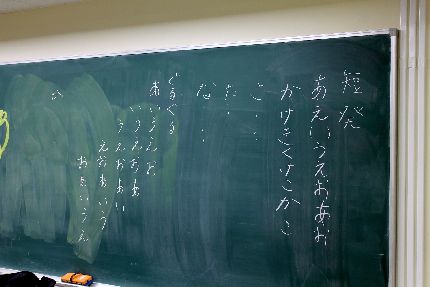 短発
あえいうえおあお
かけきくけこかこ
さ・・
た・・
な・・
ぐるぐる
あいうえお
いうえおあ
うえおあい
えおあいう
おあいうえ
か